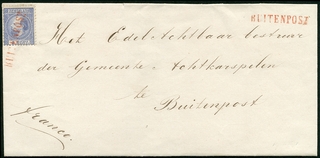 BUITENPOST
Het Edel-Achtbaar bestuur
der Gemeente Achtkarspelen
te
Buitenpost
franco.